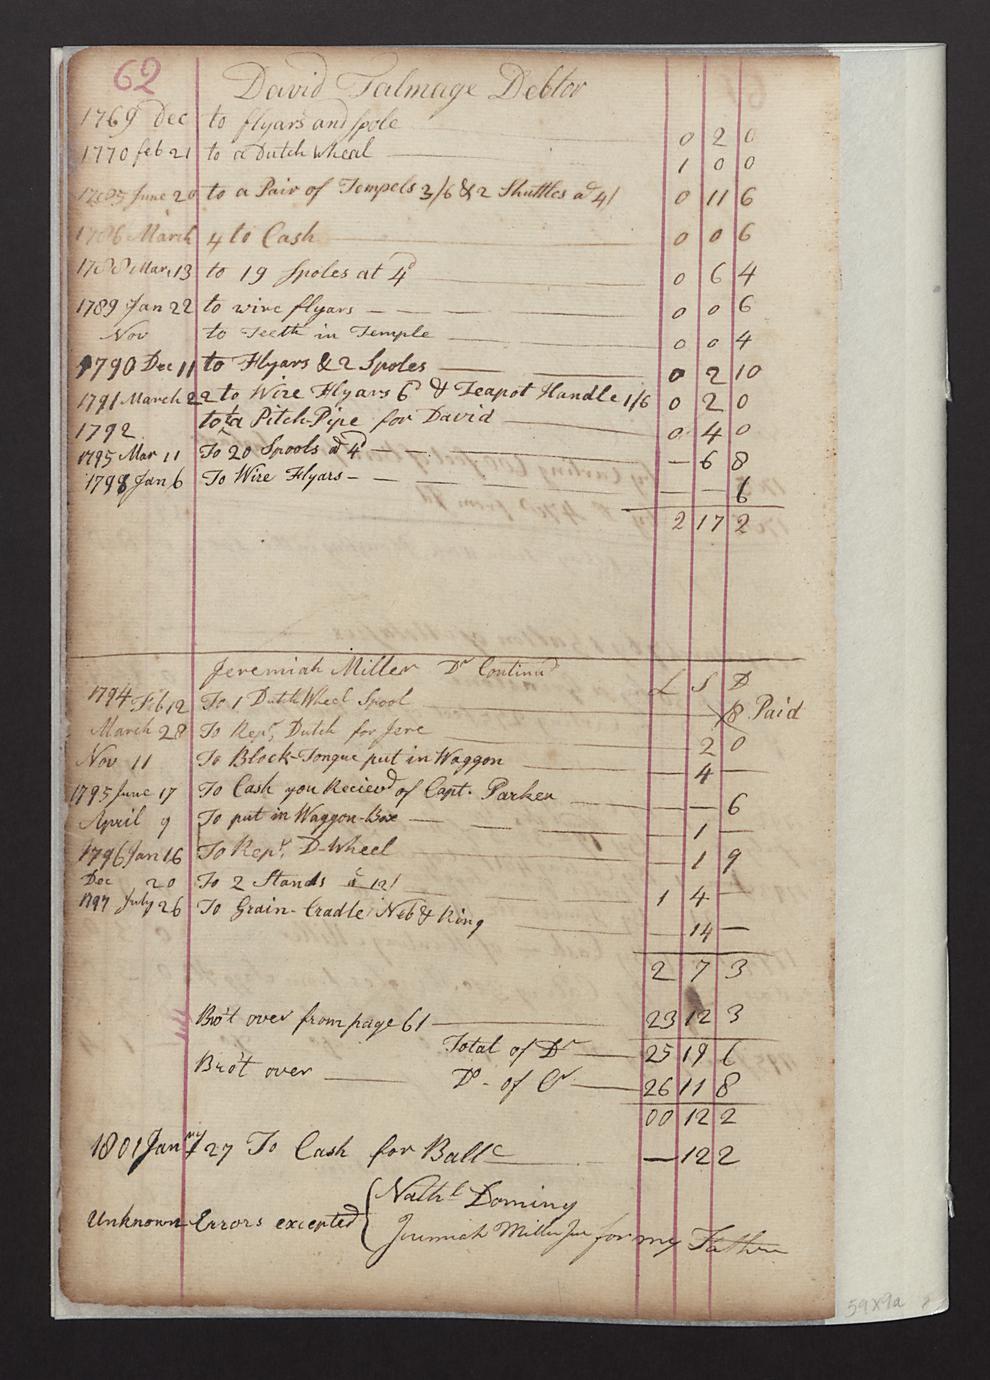 62 David Talmage Debtor
1769 Dec to flyars and spole 0 2 0
1770 feb 21 to a Dutch Wheal 1 0 0
1785 June 20 to a Pair of Tempels 3/6 & 2 Shuttles ad 4/ 0 11 6
1786 March 4 to Cash 0 0 6
1788 Mar. 13 to 19 Spoles at 4d 0 6 4
1789 Jan 22 to wire flyars 0 0 6
Nov to Teeth in Temple 0 0 4
1790 Dec 11 to Flyars & 2 Spoles 0 2 10
1791 March 22 to Wire Flyars 6d & Teapot Handle 1/6 0 2 0
1792 to a Pitch-Pipe for David 0 4 0
1795 Mar 11 To 20 Spools ad 4d — 6 8
1798 Jan 6 To Wire Flyars — — — 6
2 17 2
Jeremiah Miller Dr Continud £ S D
1794 Feb 12 To 1 Dutch Wheel Spool 8 Paid
March 28 To Repg Dutch for Jere 2 0
Nov 11 To Block-Tongue put in Waggon — 4 —
1795 June 17 To Cash you Recievd of Capt. Parker — — 6
April 9 To put in Waggon-Box — 1 —
1796 Jan 16 To Repg D-Wheel — 1 9
Dec 20 To 2 Stands a 12/ 1 4 —
1797 July 26 To Grain-Cradle Neb & Ring — 14 —
2 7 3
Bro't over from page 61 — 23 12 3
Total of Dr — 25 19 6
Bro't over — Do - of Cr — 26 11 8
00 12 2
1801 Janry 27 To Cash for Ballc — 12 2
Unknown Errors excepted { Nathl Dominy
Jeremiah Miller Jur for my Father
59x9a